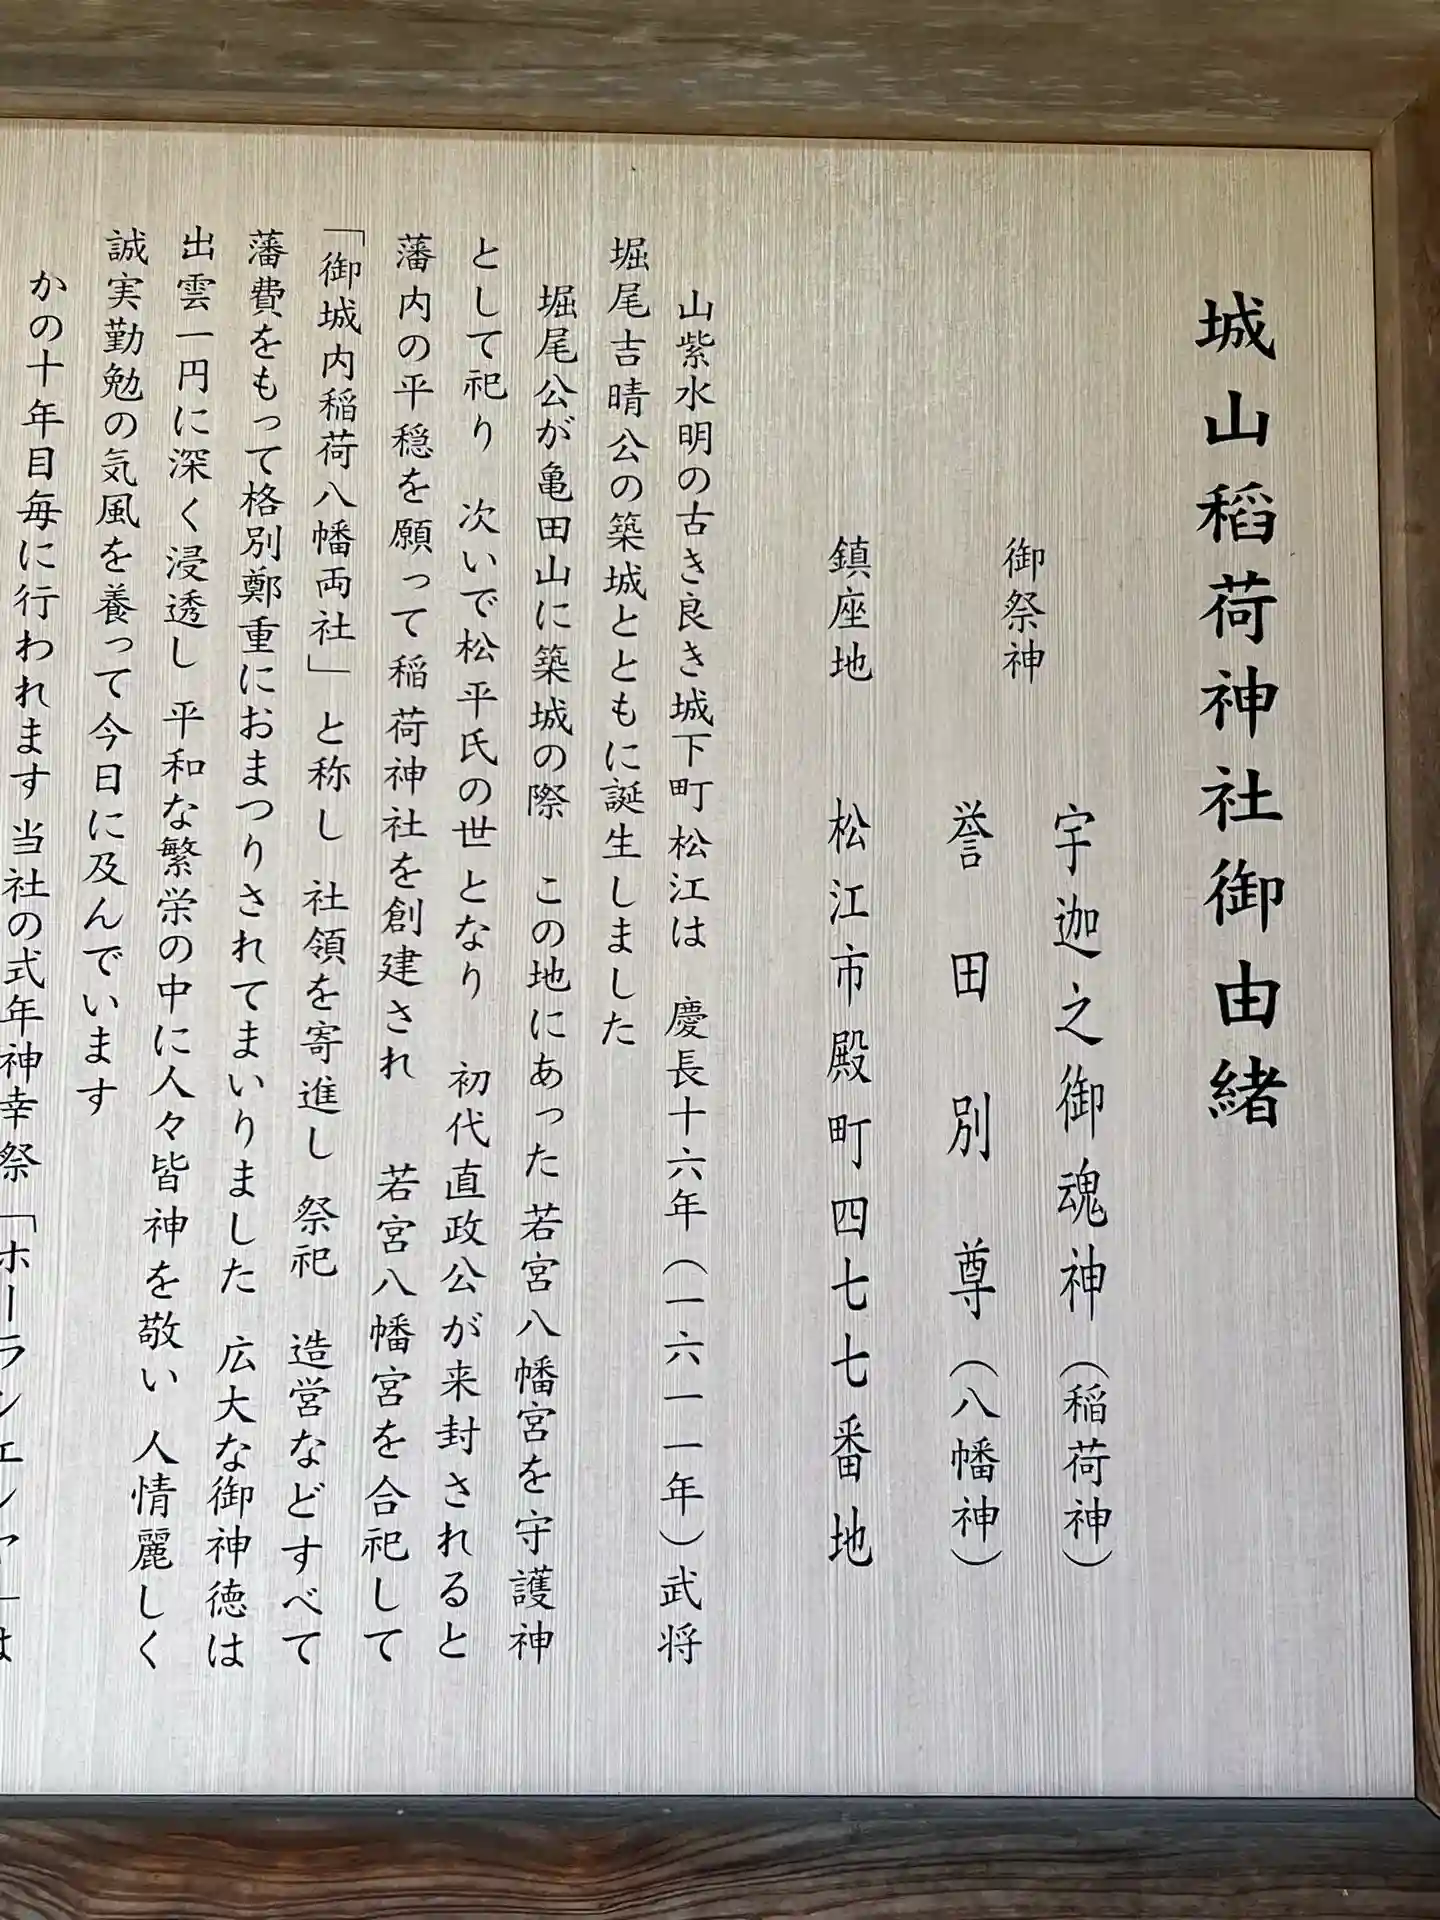 城山稻荷神社御由緒
御祭神
宇迦之御魂神（稲荷神）
誉田別尊（八幡神）
鎮座地　松江市殿町四七七番地
山紫水明の古き良き城下町松江は　慶長十六年（一六一一年）武将
堀尾吉晴公の築城とともに誕生しました
堀尾公が亀田山に築城の際　この地にあった若宮八幡宮を守護神
として祀り　次いで松平氏の世となり　初代直政公が来封されると
藩内の平穏を願って稲荷神社を創建され　若宮八幡宮を合祀して
「御城内稲荷八幡両社」と称し　社領を寄進し　祭祀　造営などすべて
藩費をもって格別鄭重におまつりされてまいりました　広大な御神徳は
出雲一円に深く浸透し　平和な繁栄の中に人々皆神を敬い　人情麗しく
誠実勤勉の気風を養って今日に及んでいます
かの十年目毎に行われます当社の式年神幸祭「ホーランエンヤ」は